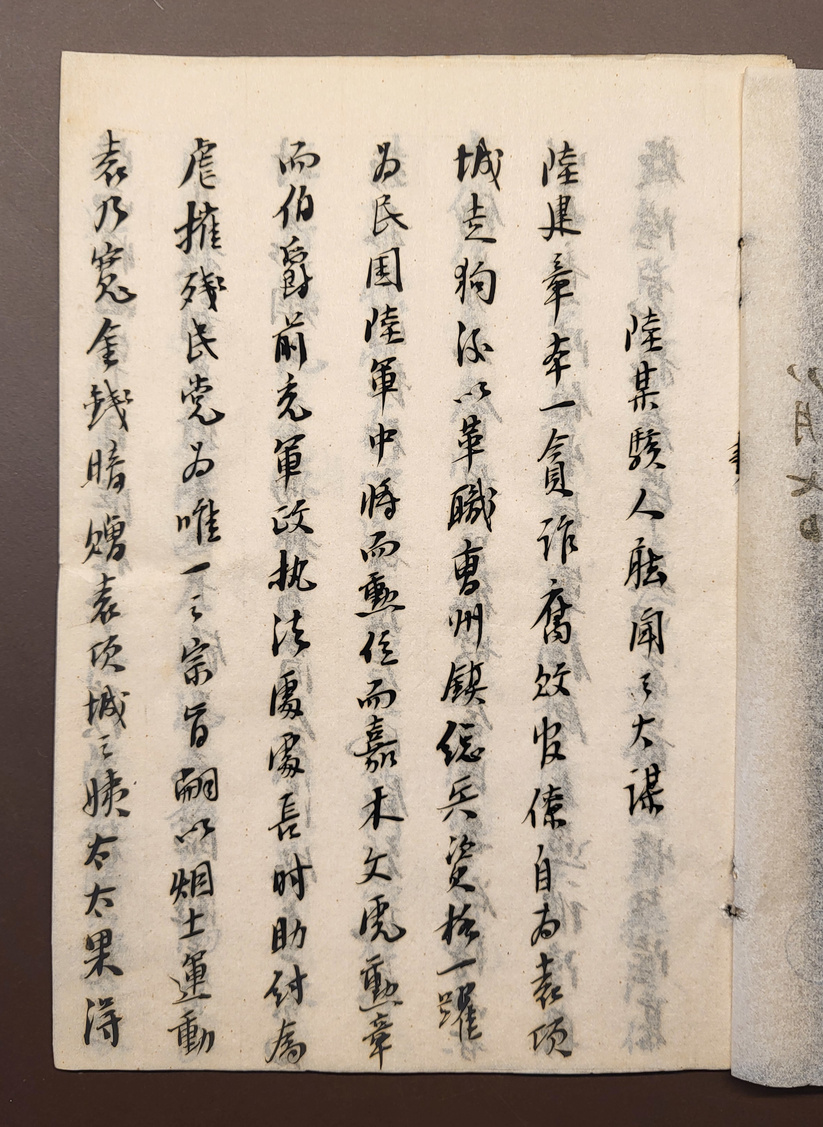 陸某駭人聽聞之大謀
陸建章本一貪詐腐敗官僚自為袁項
城走狗後以革職曹州鎮總兵資格一躍
為民国陸軍中將而勳位而嘉禾文虎勳章
而伯爵前充軍政执法處處長时助紂為
虐摧残民党為唯一之宗旨嗣以烟土運動
袁乃寬金錢暗贈袁項城之姨太太果得
八月七日